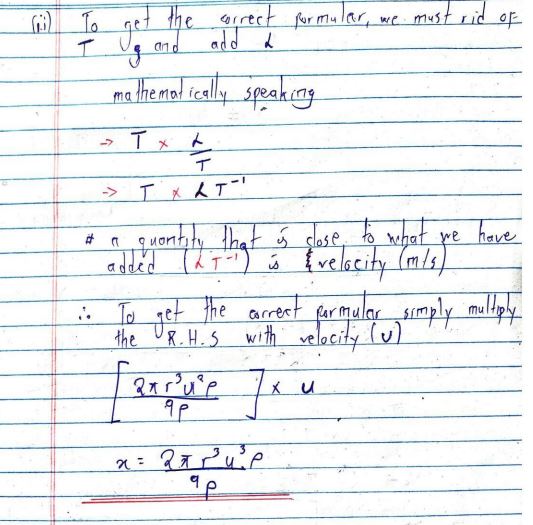 (ii) To get the correct formular, we must rid of
T g and add L
mathematically speaking
→ T x L/T
→ T x LT⁻¹
# a quantity that is close to what we have
added (LT⁻¹) is velocity (m/s)
∴ To get the correct formular simply multiply
the R.H.S with velocity (u)
[2πr³u²ρ / 9p] x u
x = 2πr³u³ρ / 9p